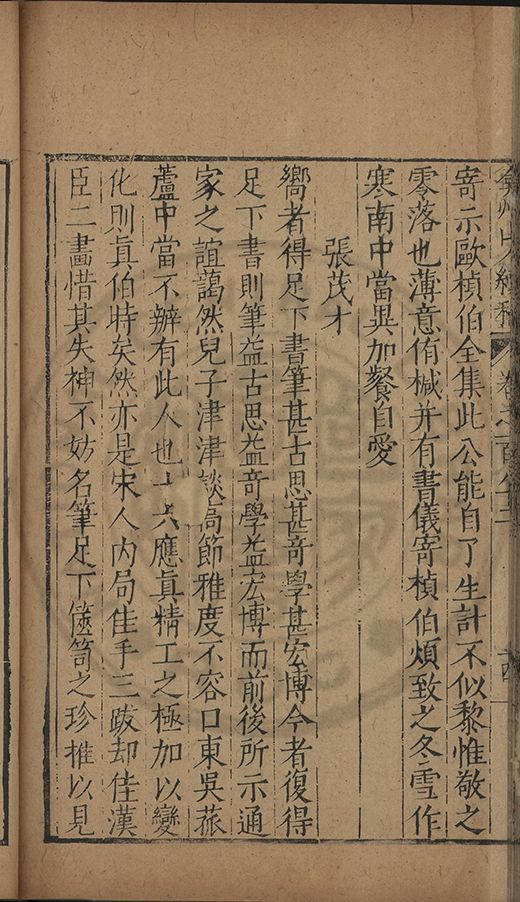 寄示歐楨伯全集此公能自了生計不似黎惟敬之
零落也薄意侑椷并有書儀寄楨伯煩致之冬雪作
寒南中當異加餐自愛
張茂才
嚮者得足下書筆甚古思甚奇學甚宏博今者復得
足下書則筆益古思益奇學益宏博而前後所示通
家之誼藹然兒子津津談高節雅度不容口東吳菰
蘆中當不辦有此人也十六應眞精工之極加以變
化則眞伯時矣然亦是宋人內局佳手三跋却佳漢
臣二畫惜其失神不妨名筆足下篋笥之珍推以見